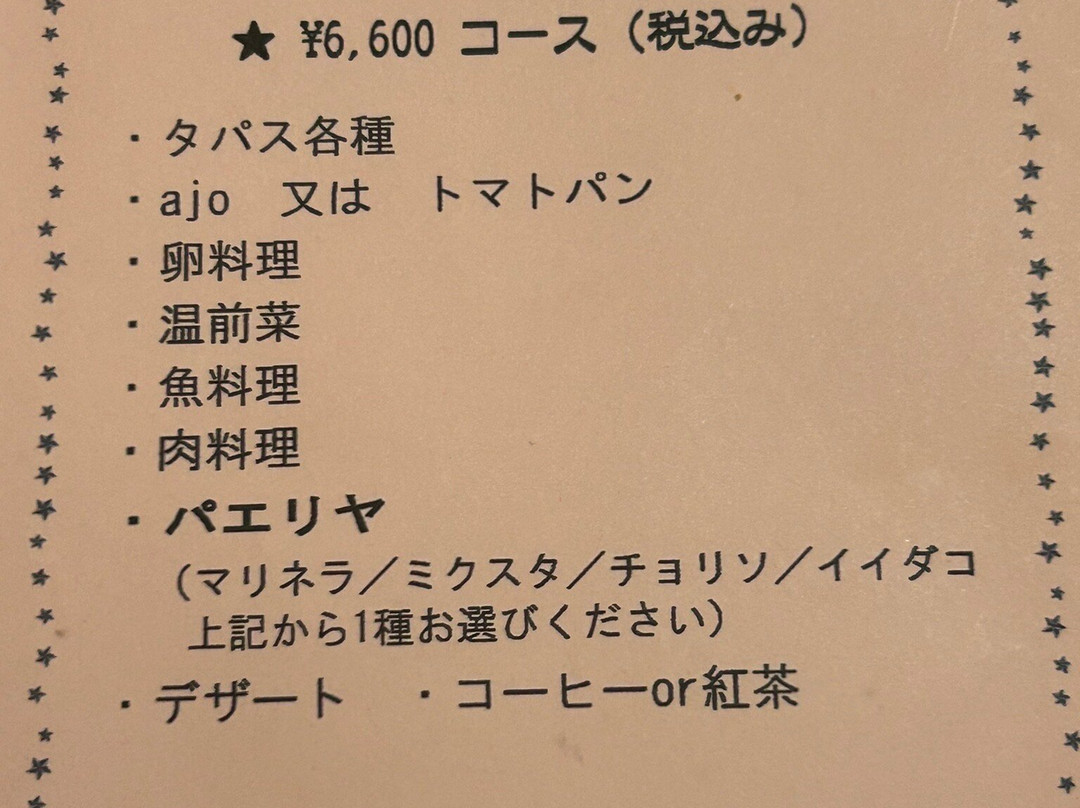 ★ ¥6,600 コース（税込み）
・タパス各種
・ajo 又は トマトパン
・卵料理
・温前菜
・魚料理
・肉料理
・パエリヤ
（マリネラ／ミクスタ／チョリソ／イイダコ
上記から1種お選びください）
・デザート ・コーヒーor紅茶